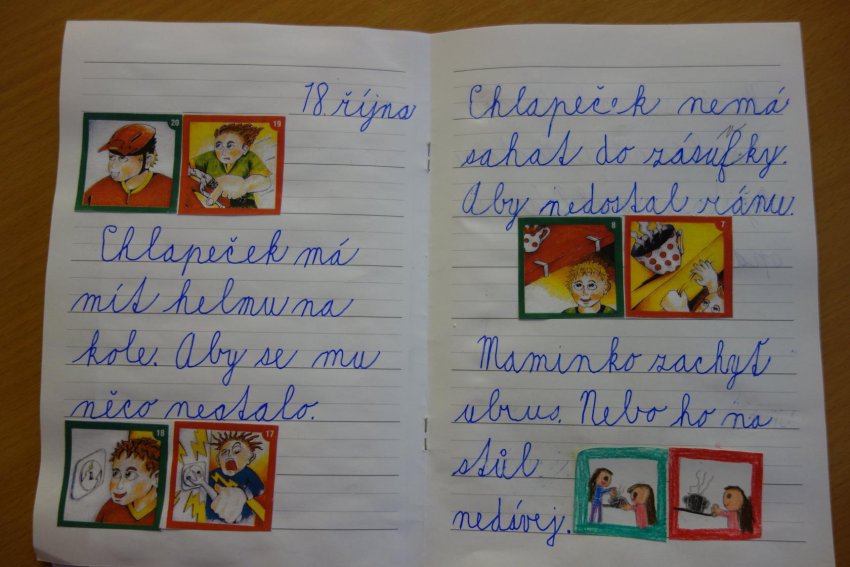 18. října
20
19
Chlapeček má
mít helmu na
kole. Aby se mu
něco nestalo.
18
17
Chlapeček nemá
sahat do zásúfky.
Aby nedostal ránu.
8
7
Maminko zachyť
ubrus. Nebo ho na
stůl
nedávej.